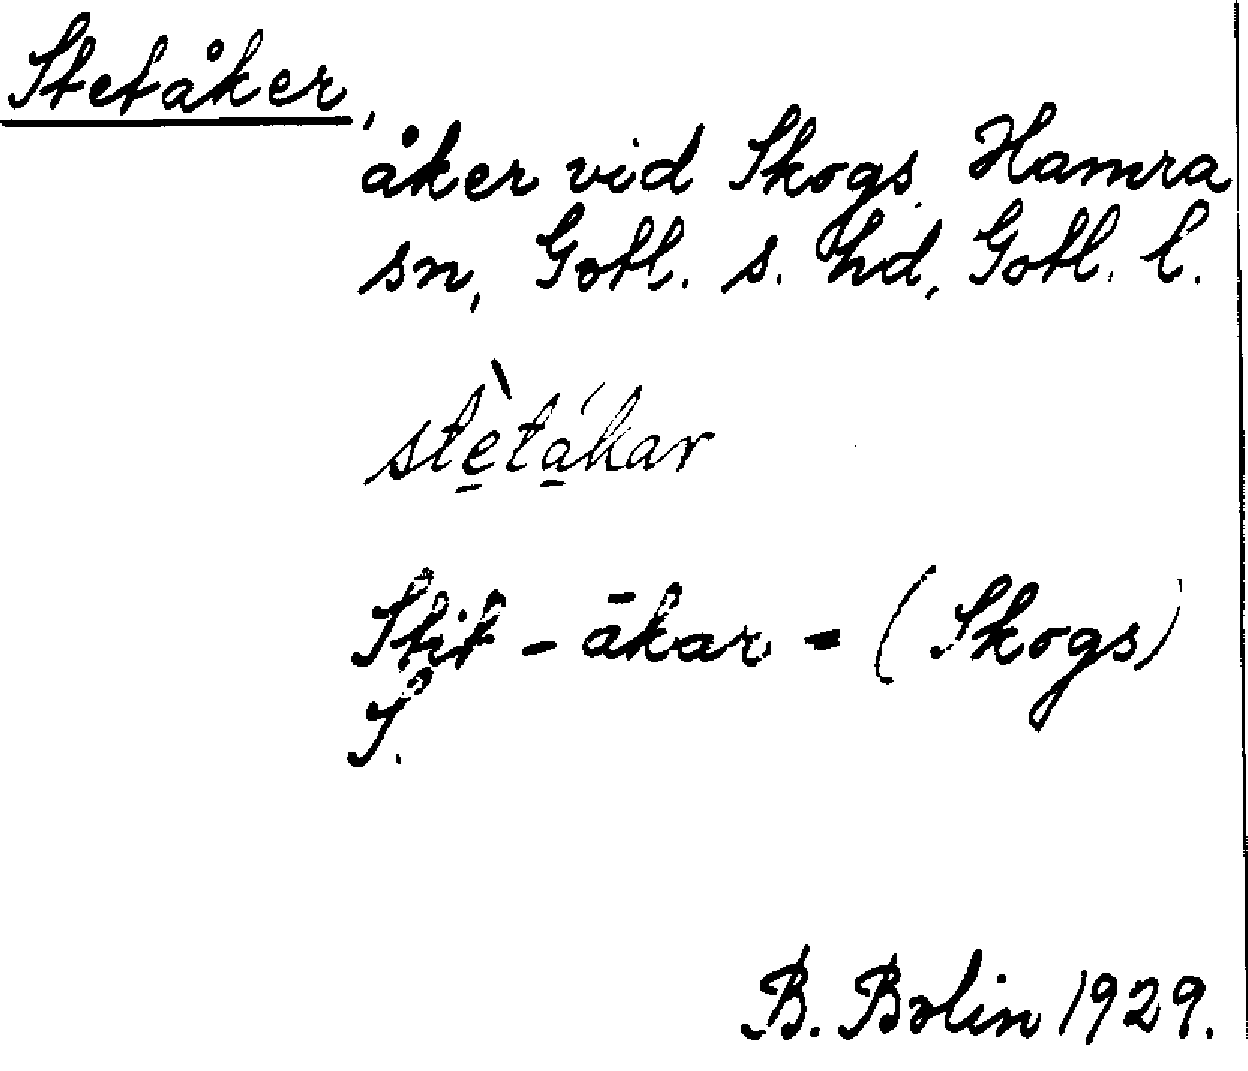 Stetåker,
åker vid Skogs, Hamra
sn, Gotl. s. hd, Gotl. l.
stètákar
Stit - ākar = (Skogs)
S.
B. Bolin 1929.